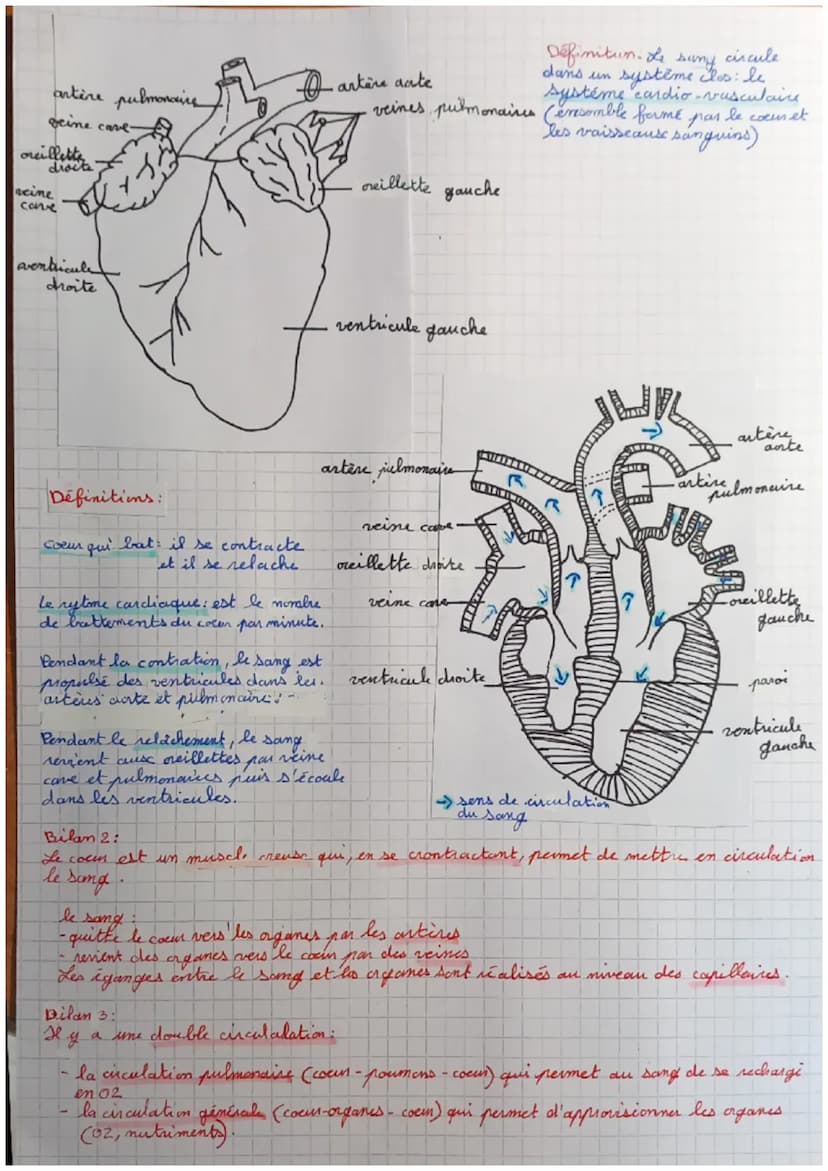 Définition. Le sang circule
dans un système clos: le
système cardio-vasculaire
(ensemble formé par le coeur et
les vaisseaux sanguins)
artère pulmonaire
artère aorte
veines pulmonaires
veine cave
oreillette
droite
veine
cave
oreillette gauche
ventricule
droite
ventricule gauche
artère
aorte
artère pulmonaire
artère
pulmonaire
veine cave
oreillette droite
veine cave
oreillette
gauche
ventricule droite
paroi
ventricule
gauche
→ sens de circulation
du sang
Définitions:
coeur qui bat: il se contracte
et il se relache
Le rytme cardiaque: est le nombre
de battements du coeur par minute.
Pendant la contration, le sang est
propulsé des ventricules dans les
artèrs aorte et pulmonaire.
Pendant le relâchement, le sang
revient aux oreillettes par veine
cave et pulmonaires puis s'écoule
dans les ventricules.
Bilan 2:
Le coeur est un muscle creuse qui, en se crontractant, permet de mettre en circulation
le sang.
le sang:
- quitte le coeur vers les organes par les artères
- revient des organes vers le coeur par des veines
Les éganges entre le sang et les organes sont réalisés au niveau des capillaires.
Bilan 3:
Il y a une double circulalation:
- la circulation pulmonaire (coeur - poumons - coeur) qui permet au sang de se rechargé
en O2
- la circulation générale (coeur-organes - coeur) qui permet d'approvisionner les organes
(O2, nutriments).